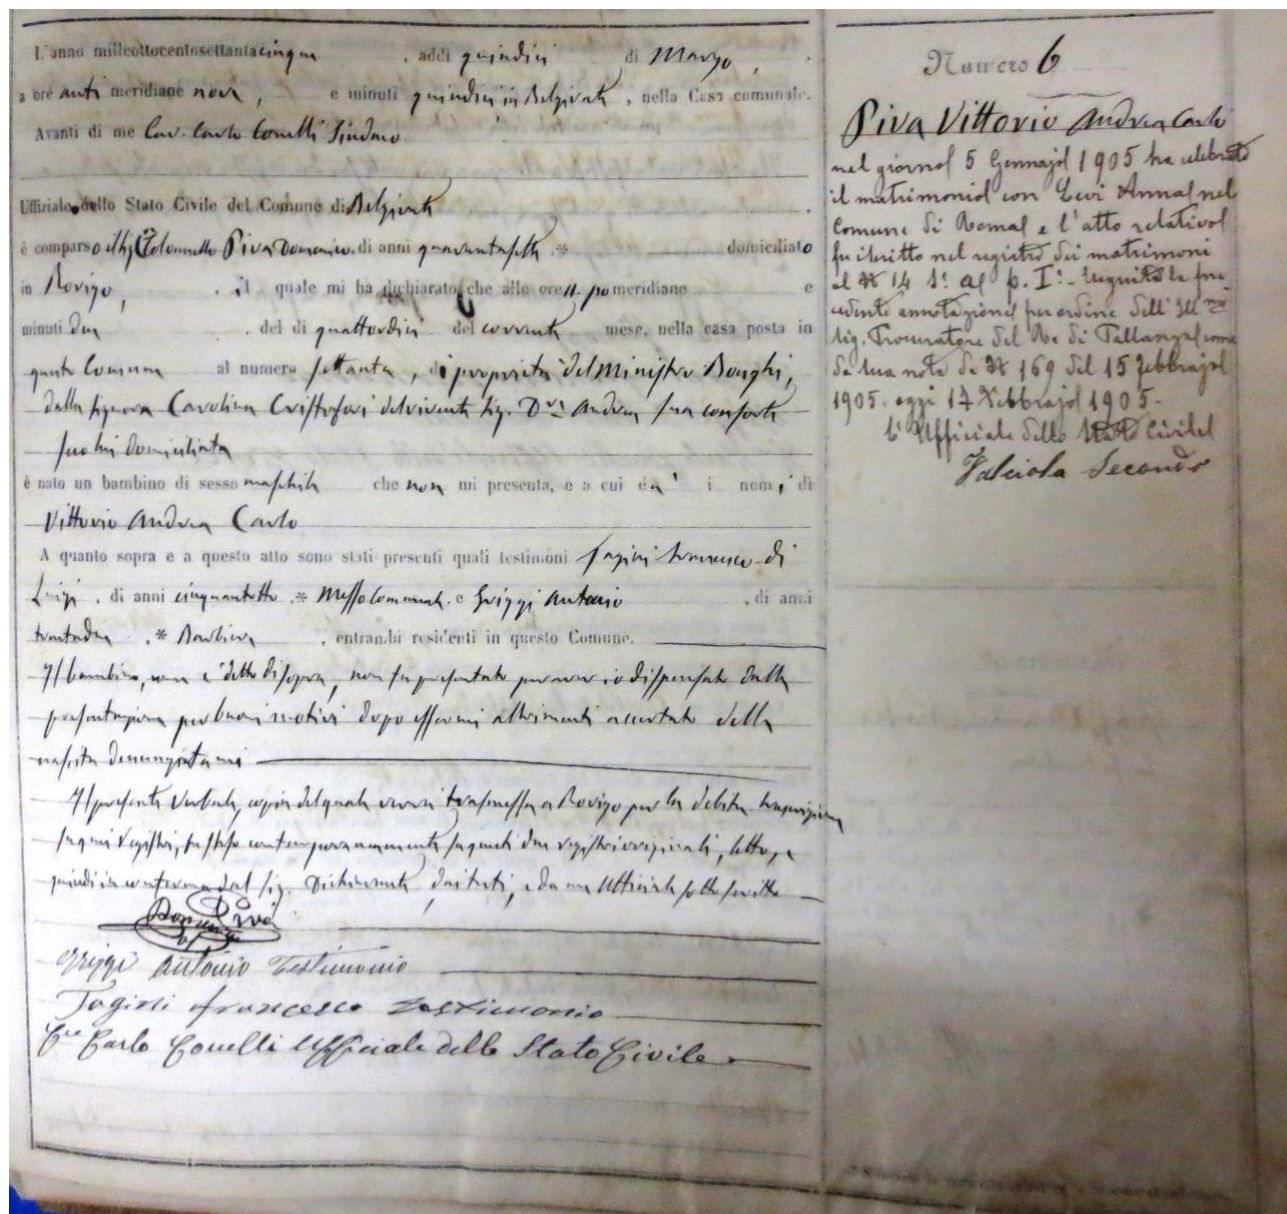 L'anno milleottocentosettantacinque, addì quindici di Marzo,
a ore anti meridiane nove, e minuti quindici in Belgirate, nella Casa comunale.
Avanti di me Cav. Carlo Conelli Sindaco
Uffiziale dello Stato Civile del Comune di Belgirate
è comparso Colonnello Piva Domenico, di anni quarantasette * domiciliato
in Rovigo, il quale mi ha dichiarato che alle ore pomeridiane e
minuti due, del dì quattordici del corrente mese, nella casa posta in
questo Comune al numero settanta, di proprietà del Ministro Bonghi,
dalla signora Carolina Cristofori del vivente Sig. Andrea sua consorte
seco lui domiciliata
è nato un bambino di sesso maschile che non mi presenta, e a cui dà i nomi di
Vittorio Andrea Carlo
A quanto sopra e a questo atto sono stati presenti quali testimoni Tagini Francesco di
Luigi, di anni cinquantotto * Messo Comunale e Griggi Antonio, di anni
trentadue, * Barbiere, entrambi residenti in questo Comune.
Il bambino, come è detto di sopra, non fu presentato per aver io dispensato dalla
presentazione per buoni motivi dopo essermi altrimenti accertato della
nascita denunziatami
Il presente Verbale, copia del quale verrà trasmessa a Rovigo per la debita trascrizione
su quei registri, fu steso contemporaneamente su questi due registri originali, letto, e
quindi in conferma dal Sig. Dichiarante, dai testi, e da me Ufficiale sottoscritto
Domenico Piva
Griggi Antonio Testimonio
Tagini francesco Testimonio
Carlo Conelli Ufficiale dello Stato Civile
Numero 6
Piva Vittorio Andrea Carlo
nel giorno 5 Gennajo 1905 ha celebrato
il matrimonio con Levi Anna nel
Comune di Roma e l'atto relativo
fu iscritto nel registro dei matrimoni
al N 14 p. I. Eseguita la pre
cedente annotazione per ordine dell'Ill.mo
Sig. Procuratore del Re di Pallanza come
da sua nota di N 169 del 15 Febbrajo
1905. oggi 17 Febbrajo 1905.
L'Ufficiale dello Stato Civile
Valciola Secondo